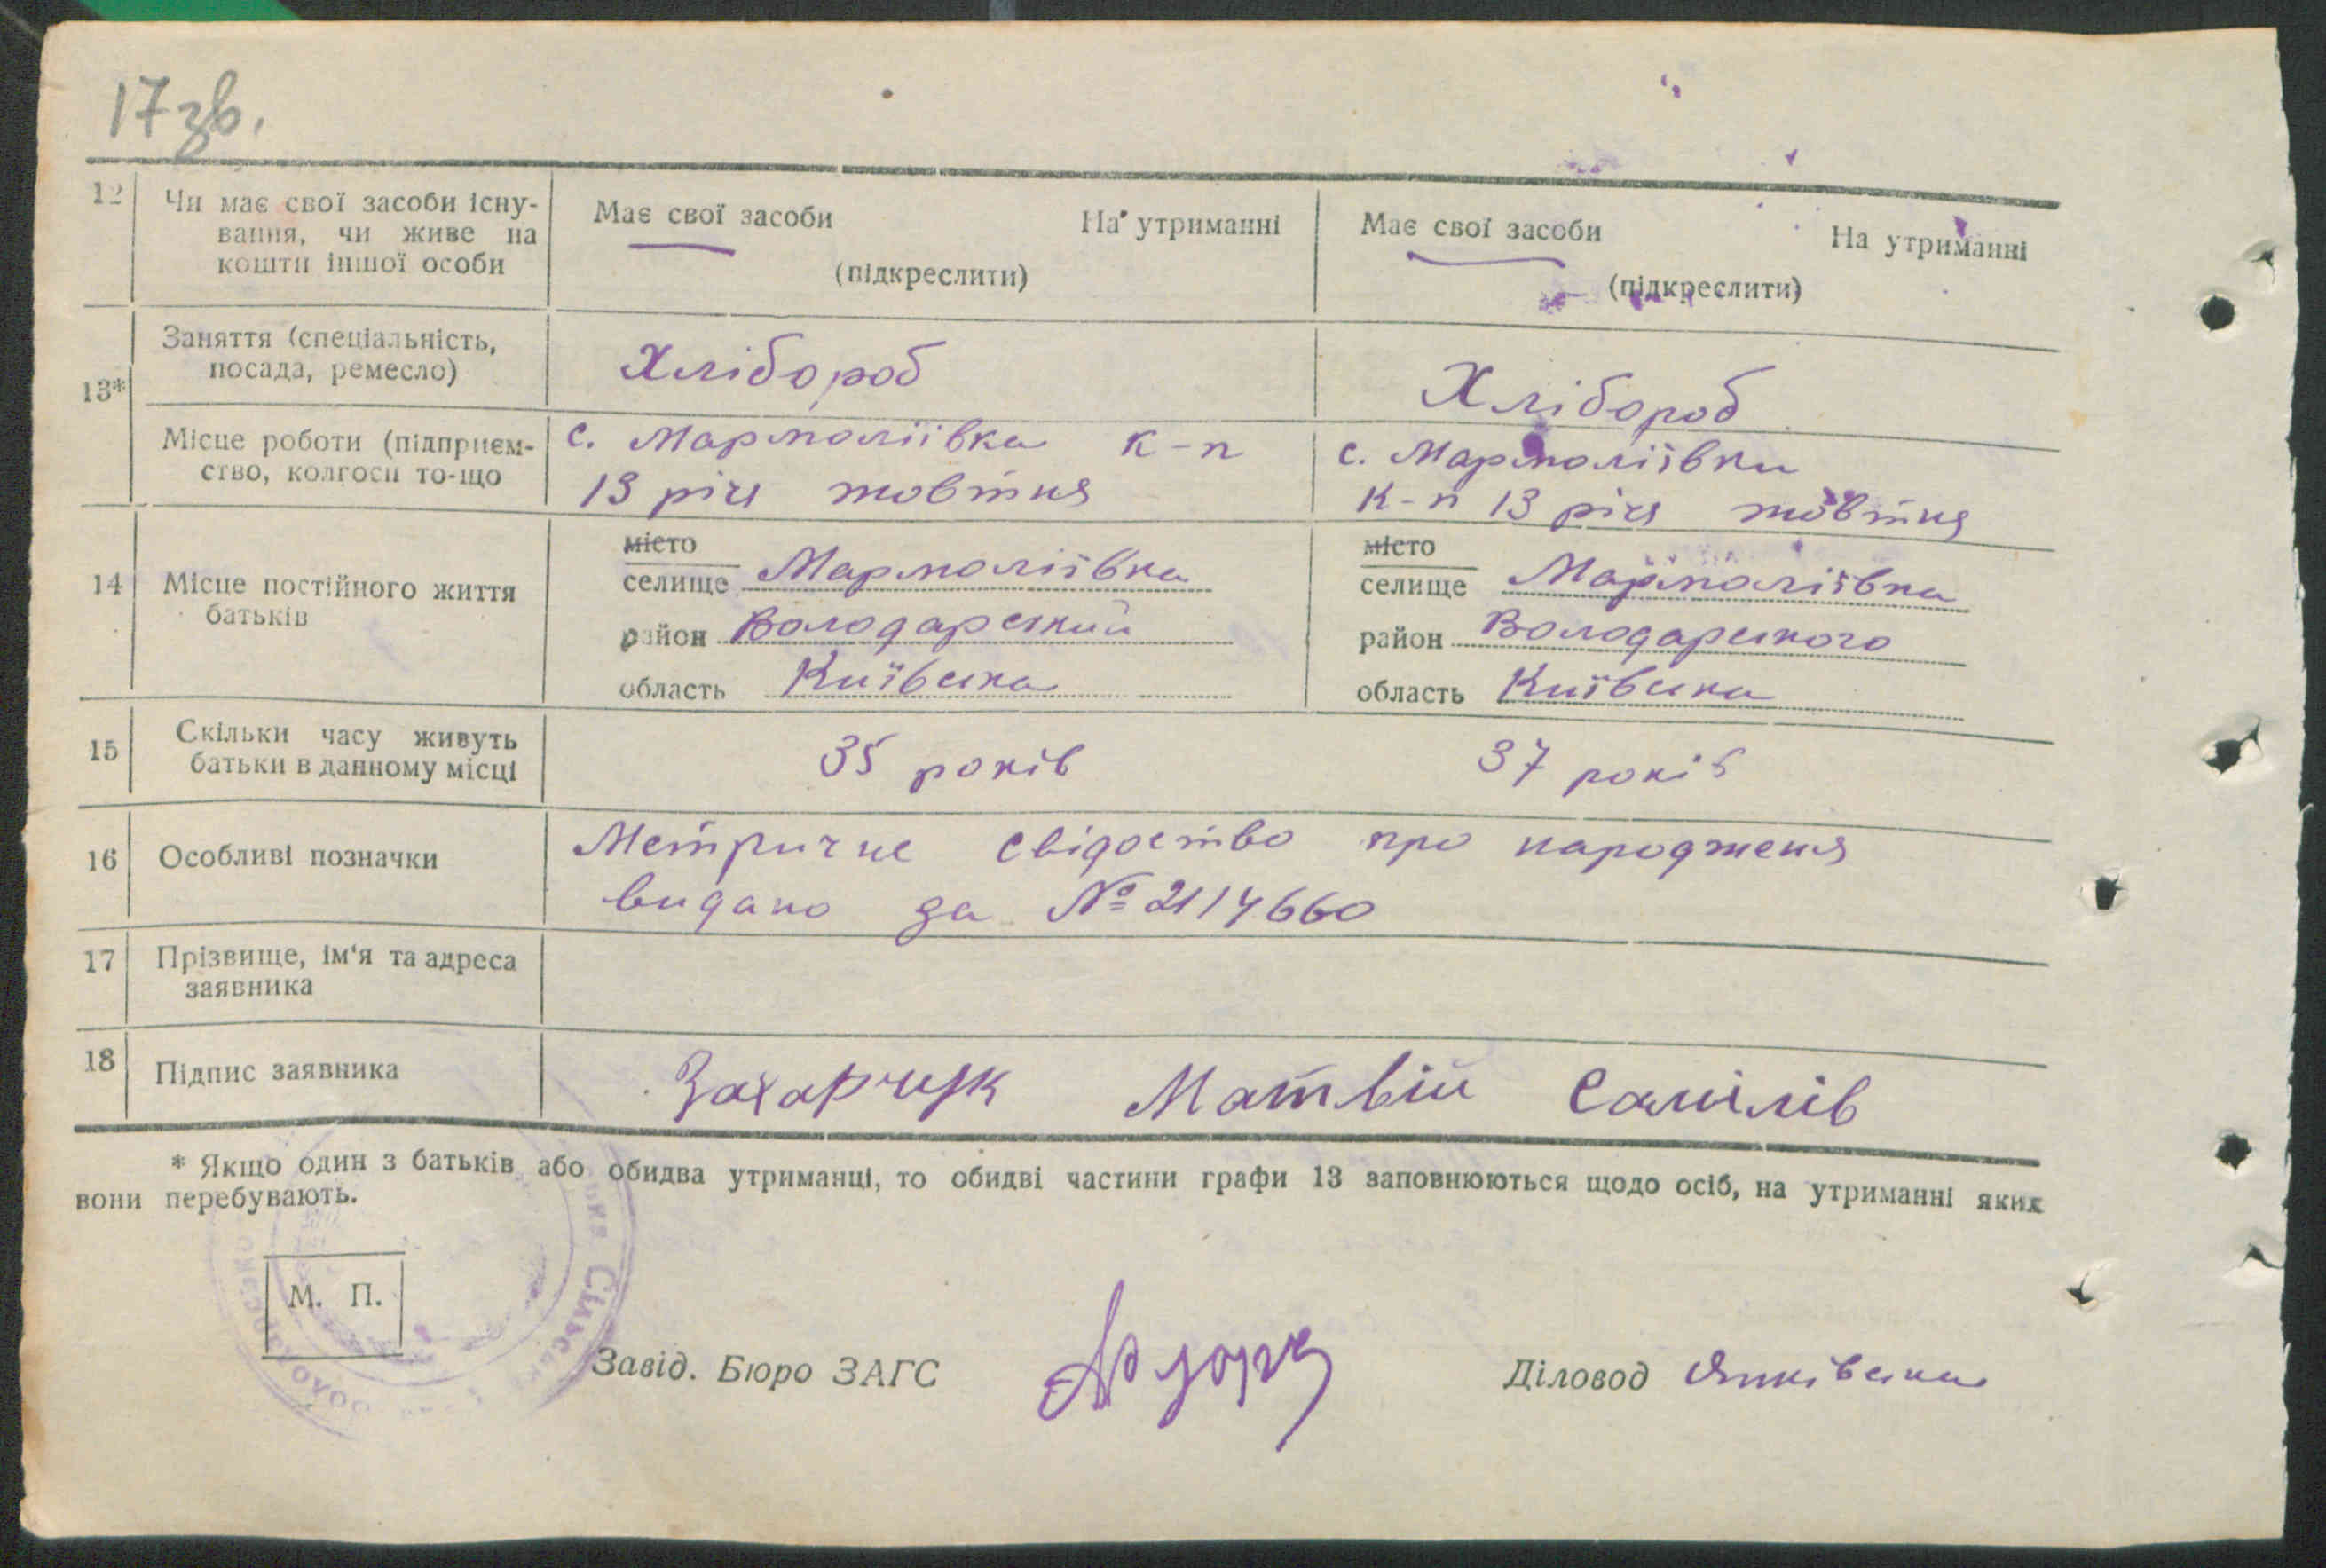 17 зв.
12 Чи має свої засоби існу-
вання, чи живе на
кошти іншої особи
Має свої засоби На утриманні
(підкреслити)
Має свої засоби На утриманні
(підкреслити)
13*
Заняття (спеціальність,
посада, ремесло)
Хлібороб
Хлібороб
Місце роботи (підприєм-
ство, колгосп то-що
с. Мармоліївка к-п
13 річя жовтня
с. Мармоліївки
к-п 13 річя жовтня
14 Місце постійного життя
батьків
місто
селище Мармоліївка
район Володарский
область Київська
місто
селище Мармоліївка
район Володарського
область Київська
15 Скільки часу живуть
батьки в данному місці
35 років
37 років
16 Особливі позначки
Метричне свідоство про народженя
видано за № 2114660
17 Прізвище, ім'я та адреса
заявника
18 Підпис заявника
Захарчук Матвій Самілів
* Якщо один з батьків або обидва утриманці, то обидві частини графи 13 заповнюються щодо осіб, на утриманні яких
вони перебувають.
М. П.
Завід. Бюро ЗАГС
Діловод Янківська